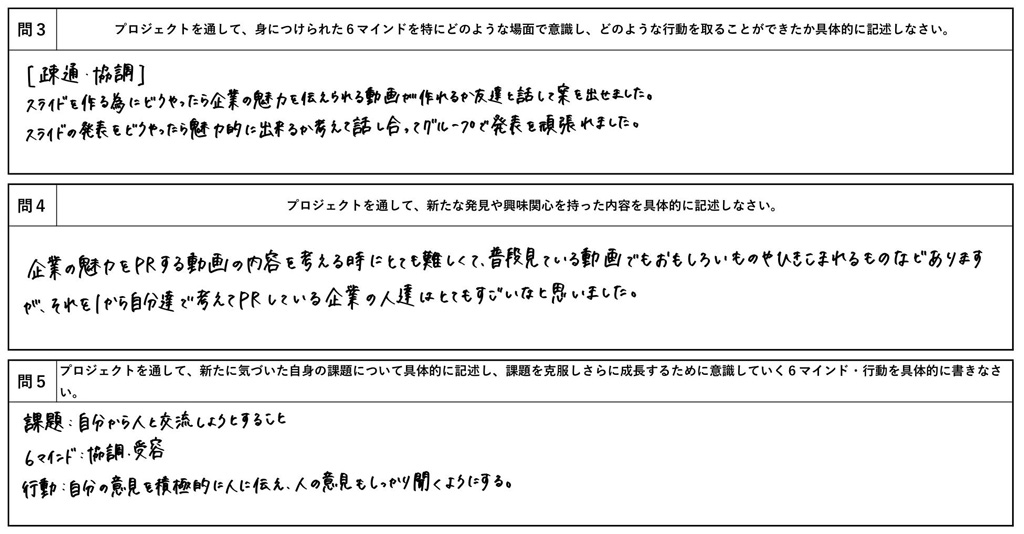 問3
プロジェクトを通して、身につけられた6マインドを特にどのような場面で意識し、どのような行動を取ることができたか具体的に記述しなさい。
[疎通・協調]
スライドを作る為にどうやったら企業の魅力を伝えられる動画が作れるか友達と話して案を出せました。
スライドの発表をどうやったら魅力的に出来るか考えて話し合ってグループで発表を頑張れました。
問4
プロジェクトを通して、新たな発見や興味関心を持った内容を具体的に記述しなさい。
企業の魅力をPRする動画の内容を考える時にとても難しくて、普段見ている動画でもおもしろいものやひきこまれるものなどあります
が、それを1から自分達で考えてPRしている企業の人達はとてもすごいなと思いました。
問5
プロジェクトを通して、新たに気づいた自身の課題について具体的に記述し、課題を克服しさらに成長するために意識していく6マインド・行動を具体的に書きなさ
い。
課題:自分から人と交流しようとすること
6マインド:協調・受容
行動:自分の意見を積極的に人に伝え、人の意見もしっかり聞くようにする。